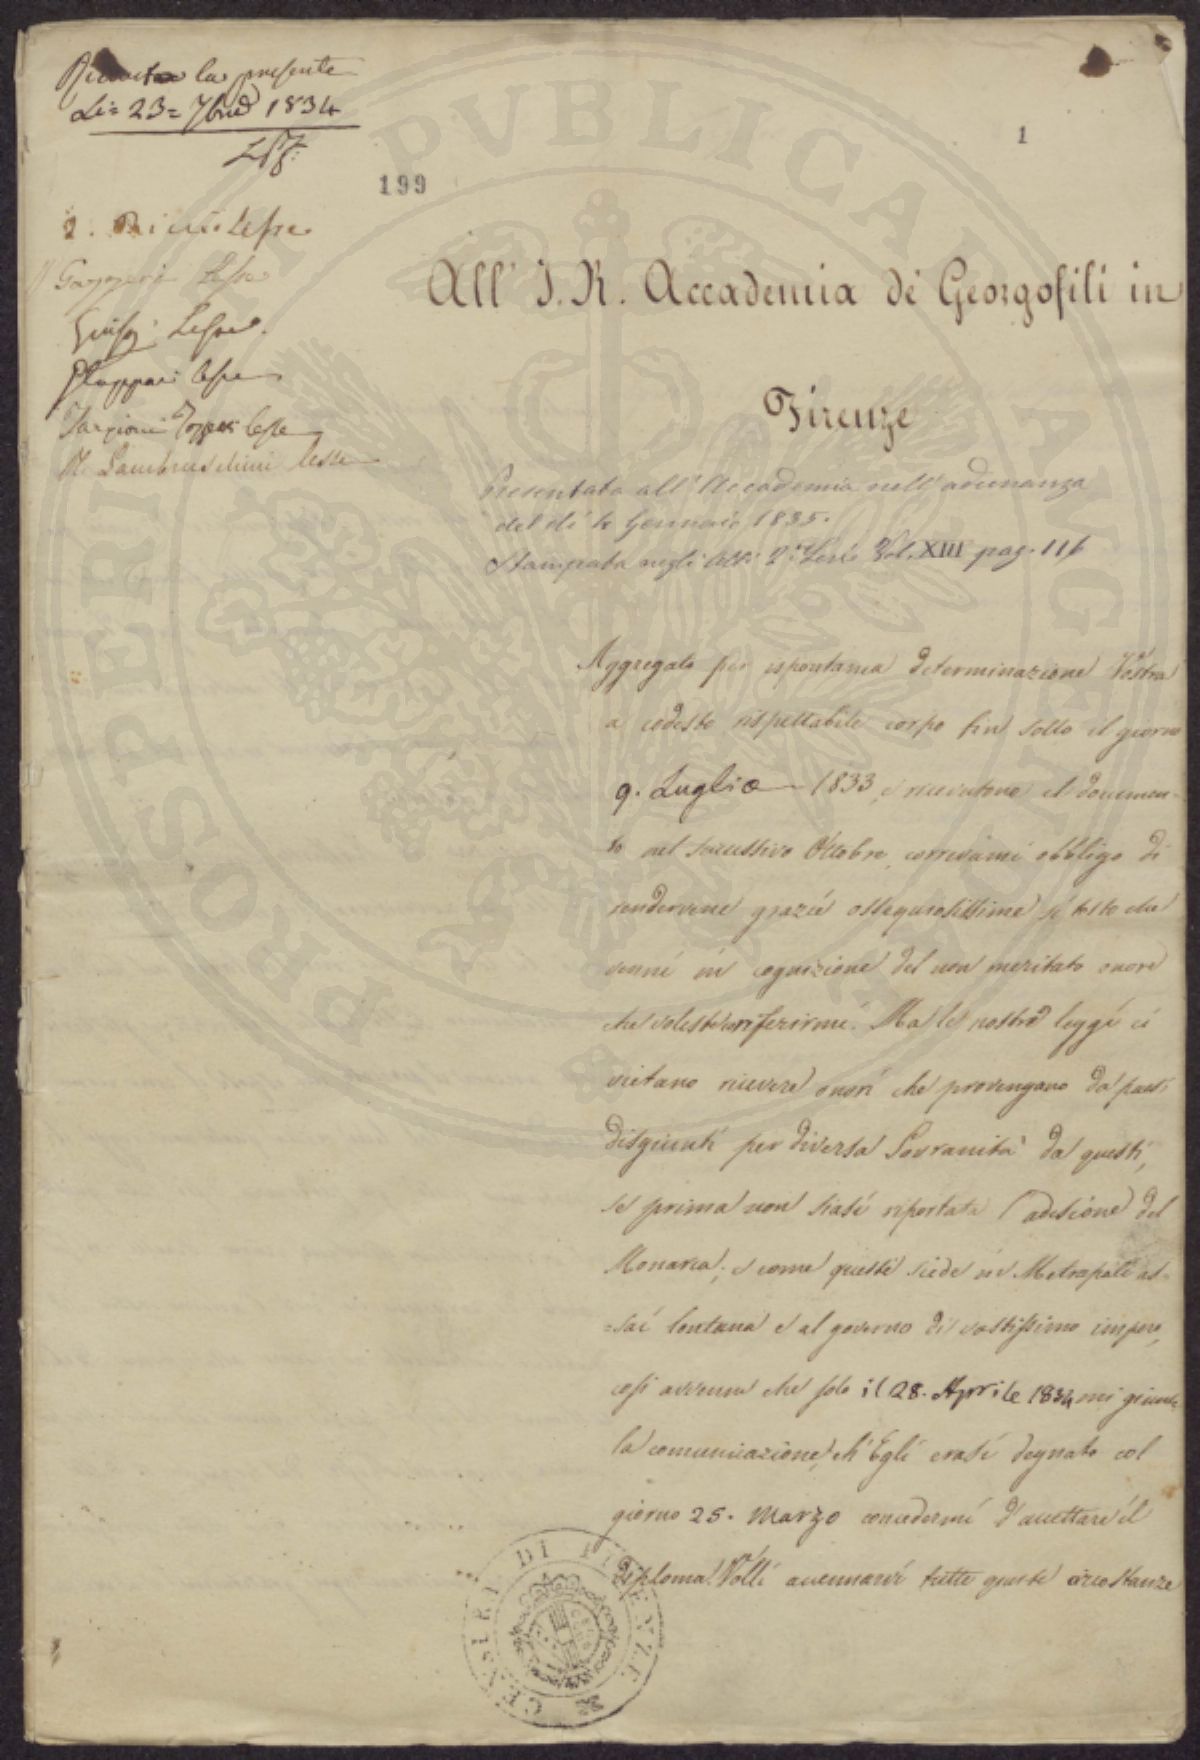 Ricevuta la presente
Li= 23= 7bre 1834
199
1
2. Ricci lesse
Gazzeri Lesse
Giusj. Lesse.
Chiappari lesse
Targioni Tozzetti lesse
R. Lambruschini lesse
All' I. R. Accademia de' Georgofili in
Firenze
Presentata all' Accademia nell' adunanza
del dì 4 Gennaio 1835.
Stampata negli Atti Vol. XIII pag. 116
Aggregato per ispontanea determinazione Vostra
a codesto rispettabile corpo fin sotto il giorno
9. Luglio 1833, e ricevutone il documen-
to nel successivo Ottobre, correvami obbligo di
rendervene grazie ossequiosissime sì tosto che
venni in cognizione del non meritato onore
che voleste conferirmi. Ma le nostre leggi ci
vietano ricevere onori che provengano da paesi
disgiunti per diversa Sovranità da questi,
se prima non siasi riportata l'adesione del
Monarca; e come questi siede in Metropoli as-
=sai lontana e al governo di vastissimo impero,
così avvenne che solo il 28. Aprile 1834 mi giunse
la comunicazione, ch' Egli erasi degnato col
giorno 25. Marzo concedermi d'accettare il
diploma. Volli accennarvi tutte queste circostanze
PROSPERITATI PVBLICAE AVGENDAE
CENSIRI DI FIRENZE